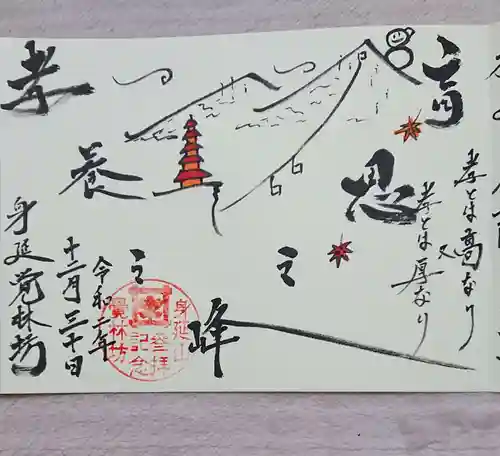 孝とは高なり
又
孝とは厚なり
育恩之峰
孝養之
令和二年
十二月三十日
身延覚林坊
身延山
参拝
記念
覺林坊